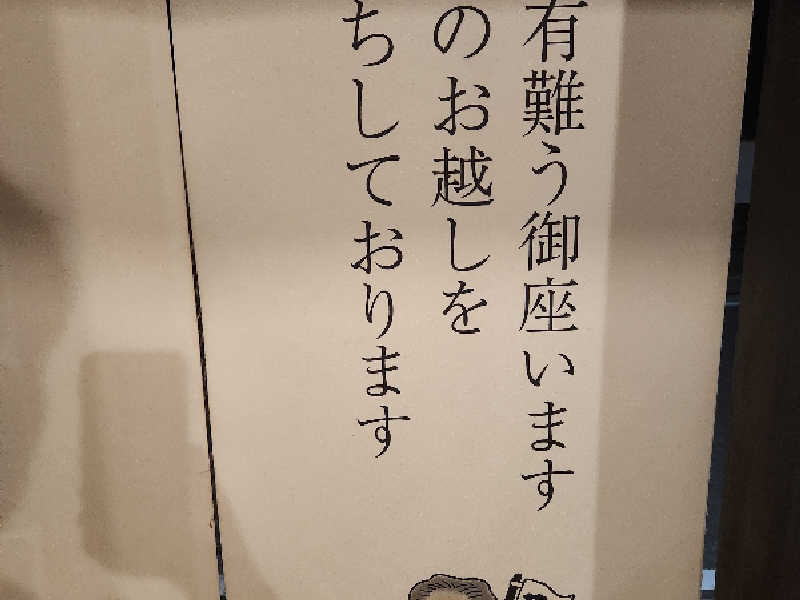 有難う御座います
のお越しを
ちしております